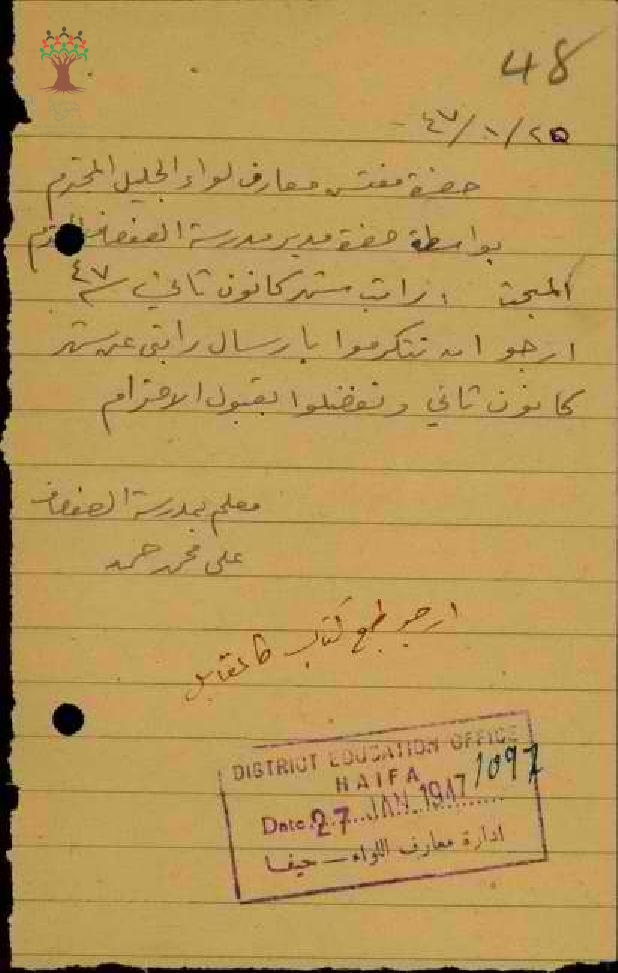 48
٢٥/١/٤٧
حضرة مفتش معارف لواء الجليل المحترم
بواسطة حضرة مدير مدرسة الصفصاف المحترم
المبحث : راتب شهر كانون ثاني سنة ٤٧
ارجو ان تتكرموا بارسال راتبي عن شهر
كانون ثاني وتفضلوا بقبول الاحترام
معلم بمدرسة الصفصاف
علي محمد حمد
ارجو طبع كتاب كالمقابل
DISTRICT EDUCATION OFFICE
HAIFA
1097
Date 27 JAN 1947
ادارة معارف اللواء - حيفا